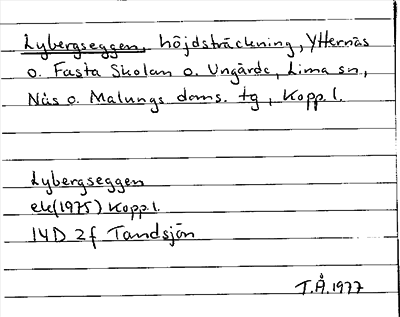 Lybergseggen, höjdsträckning, Ytternäs
o. Fasta Skolan o. Ungärde, Lima sn,
Näs o. Malungs doms. tg, Kopp. l.
Lybergseggen
ek(1975) Kopp. l.
14D 2f Tandsjön
T.Å. 1977